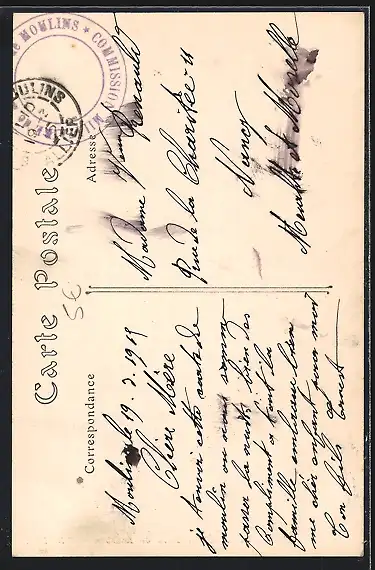 Carte Postale
5€
Correspondance
Adresse
MOULINS ★ COMMISSION
MOULINS
ALLIER
Moulins le 19. 3. 1915
Chère Mère
je t'envoi cette carte de
moulin ou nous
passer la nuit bien des
Compliment a tout la
famille embrasse bien
me chèr enfant pour moi
Ton fils Ernest
Madame Renauld
Rue de la Charitée 11
Nancy
Meurthe et Moselle